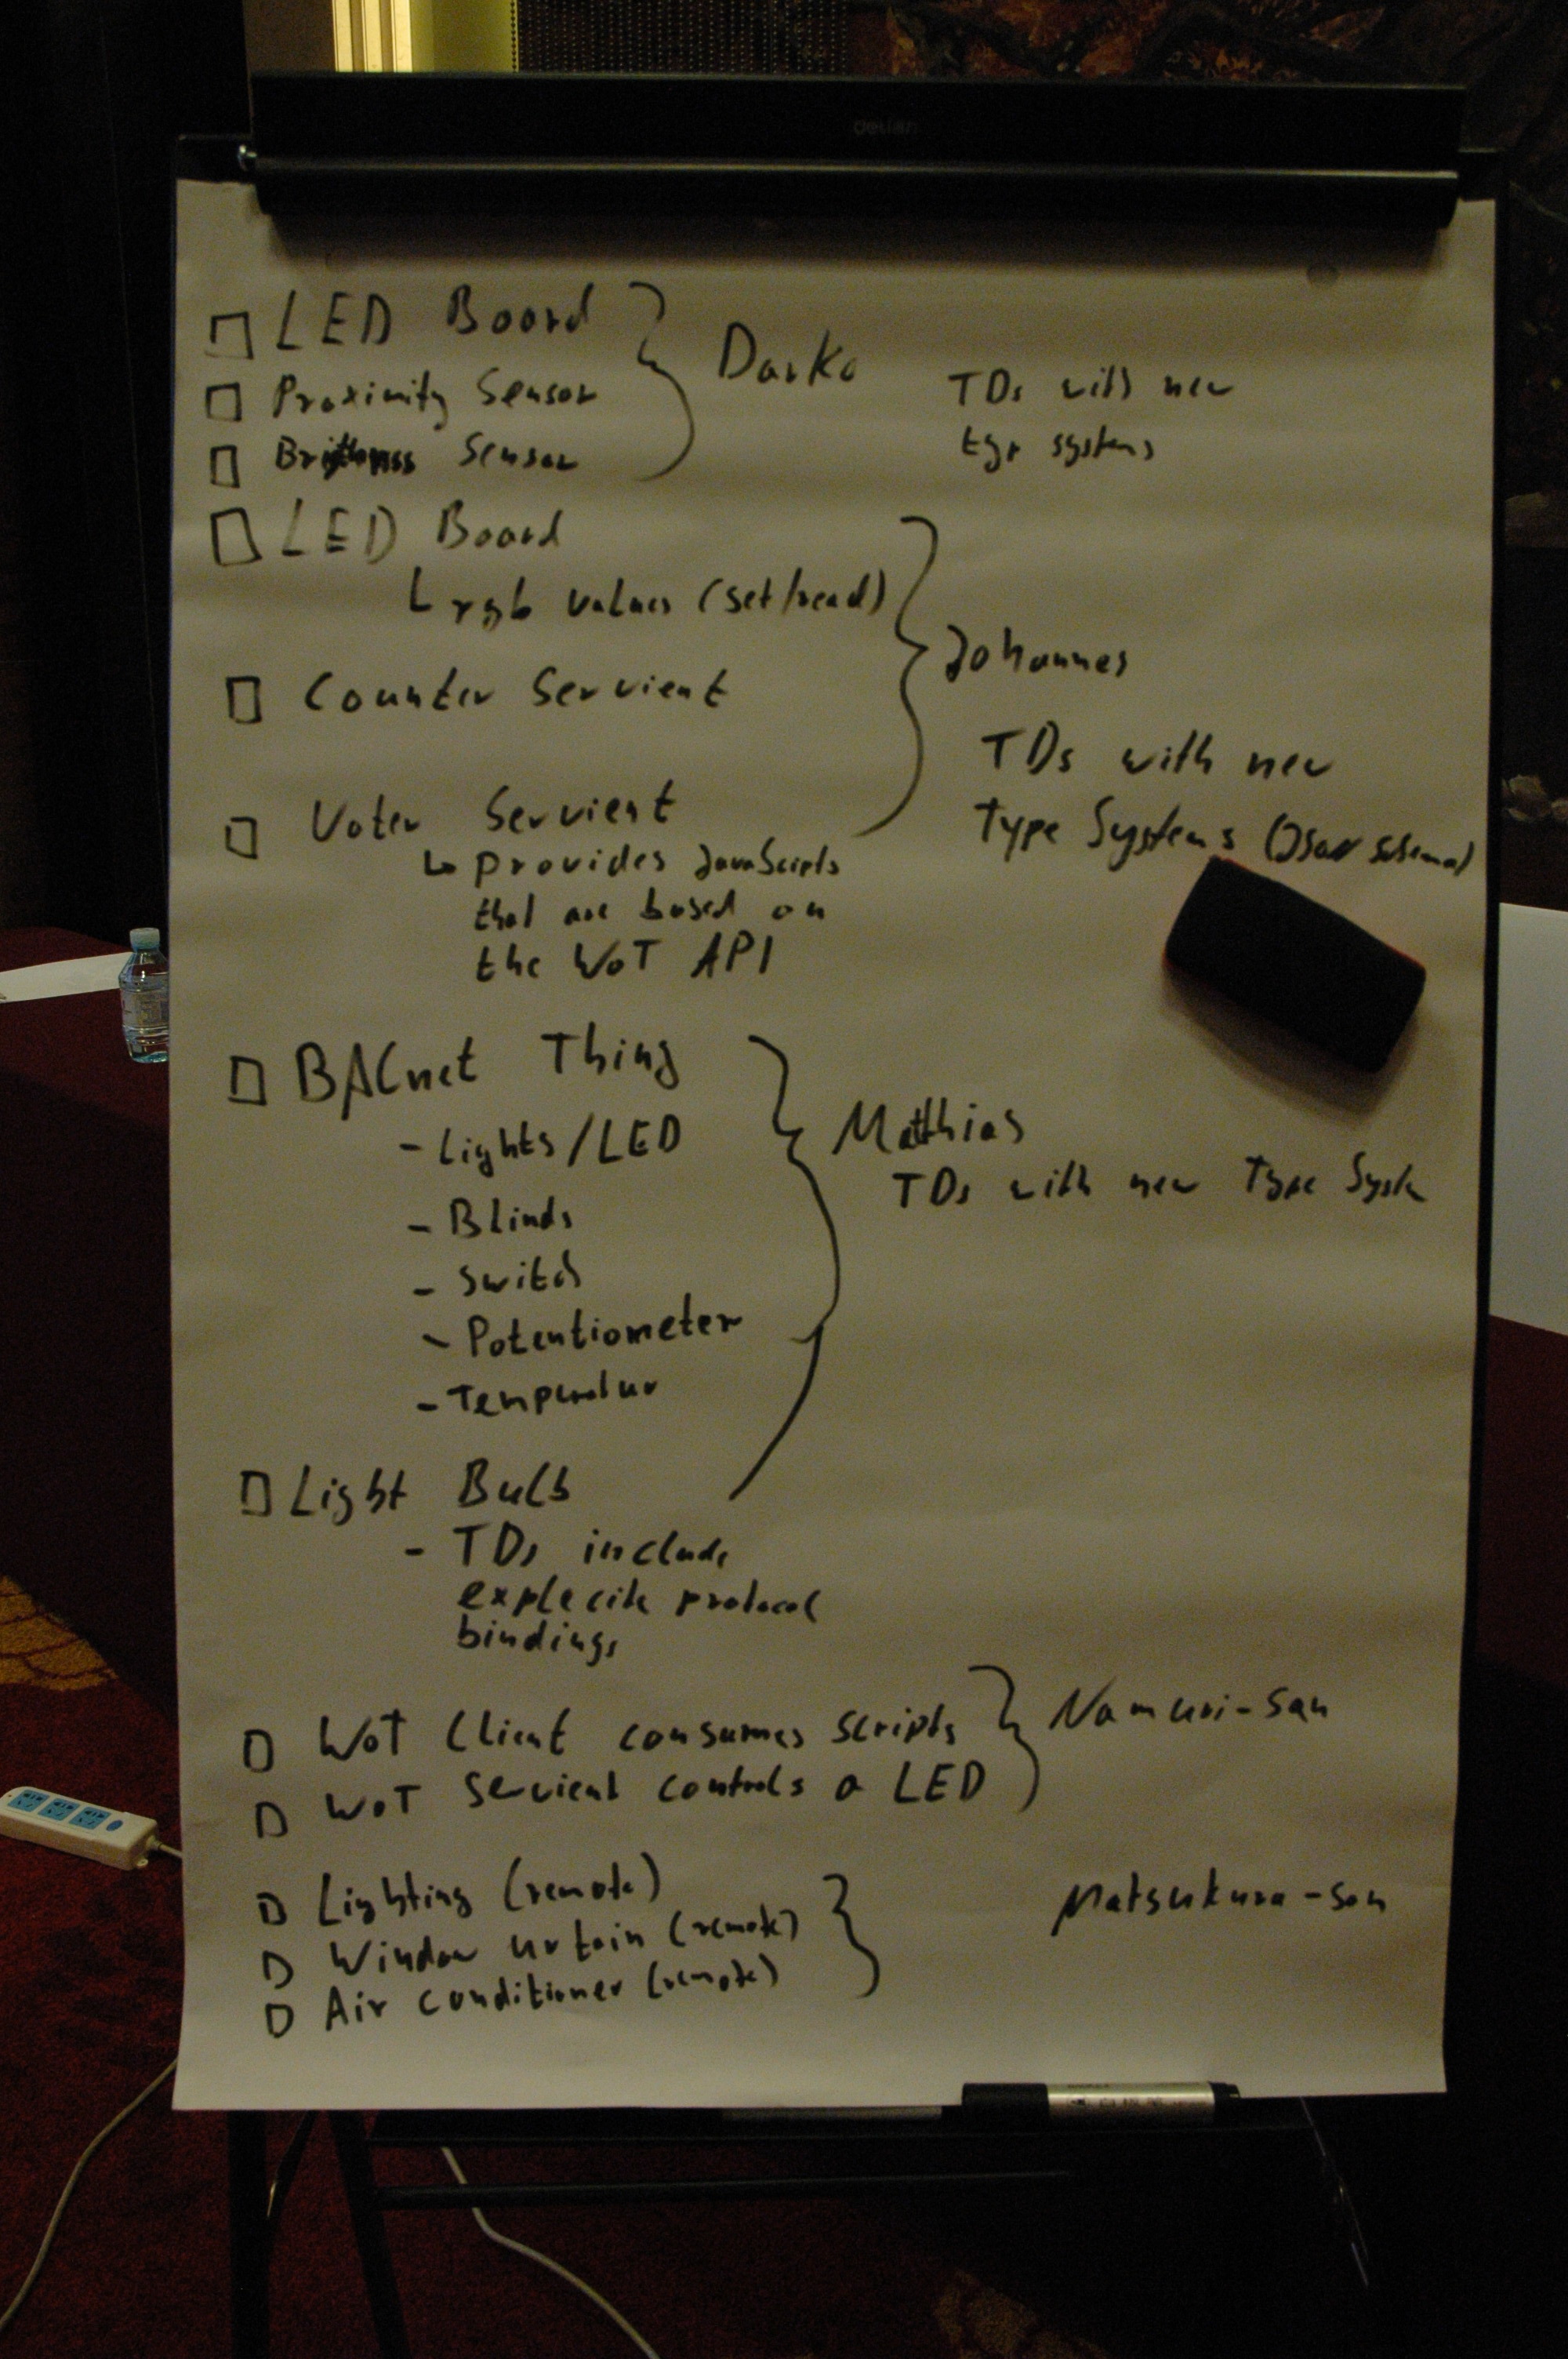 LED Board
Proximity Sensor
Sensor
Darko
TDs with new
systems
LED Board
rgb values (set/read)
Counter Servient
Voter Servient
provides JavaScripts
that are based on
the WoT API
Johannes
TDs with new
Type Systems
BACnet Thing
- Lights/LED
- Blinds
- Switch
- Potentiometer
- Temperatur
Matthias
TDs with new Type
Light Bulb
- TDs include
explecite protocol
bindings
WoT Client consumes scripts
WoT Servient controls a LED
Namuri-san
Lighting (remote)
Window urtain (remote)
Air conditioner (remote)
Matsukura-san